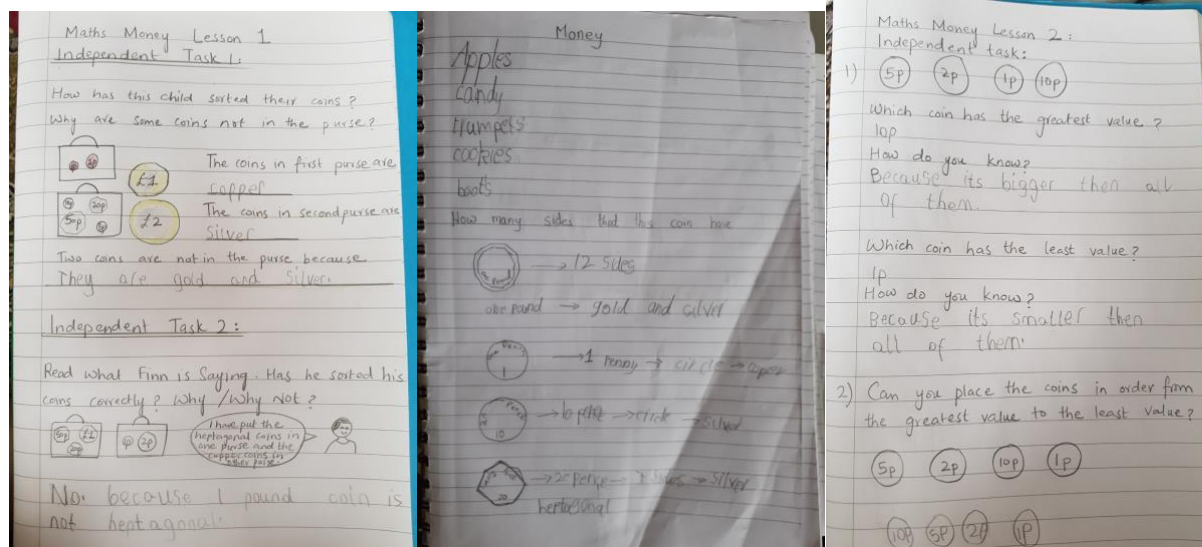 Maths Money Lesson 1
Independent Task 1:
How has this child sorted their coins?
Why are some coins not in the purse?
£1
The coins in first purse are
copper
20p
50p
£2
The coins in second purse are
Silver
Two coins are not in the purse because
They are gold and silver.
Independent Task 2:
Read what Finn is Saying. Has he sorted his
coins correctly? Why / Why Not?
50p £1
20p
2p
I have put the
heptagonal coins in
one purse and the
copper coins in
other purse
No. because 1 pound coin is
not heptagonal.
Money
Apples
candy
trumpets
cookies
boots
How many sides that this coin have
12 sides
one pound → gold and silver
1
→ 1 penny → circle → coper
10
→ 10 pence → circle → silver
20
→ 20 pence → 7 sides → silver
heptagonal
Maths Money Lesson 2:
Independent task:
1) 5p 2p 1p 10p
Which coin has the greatest value?
10p
How do you know?
Because its bigger then all
of them.
Which coin has the least value?
1p
How do you know?
Because its smaller then
all of them.
2) Can you place the coins in order from
the greatest value to the least value?
5p 2p 10p 1p
10p 5p 2p 1p